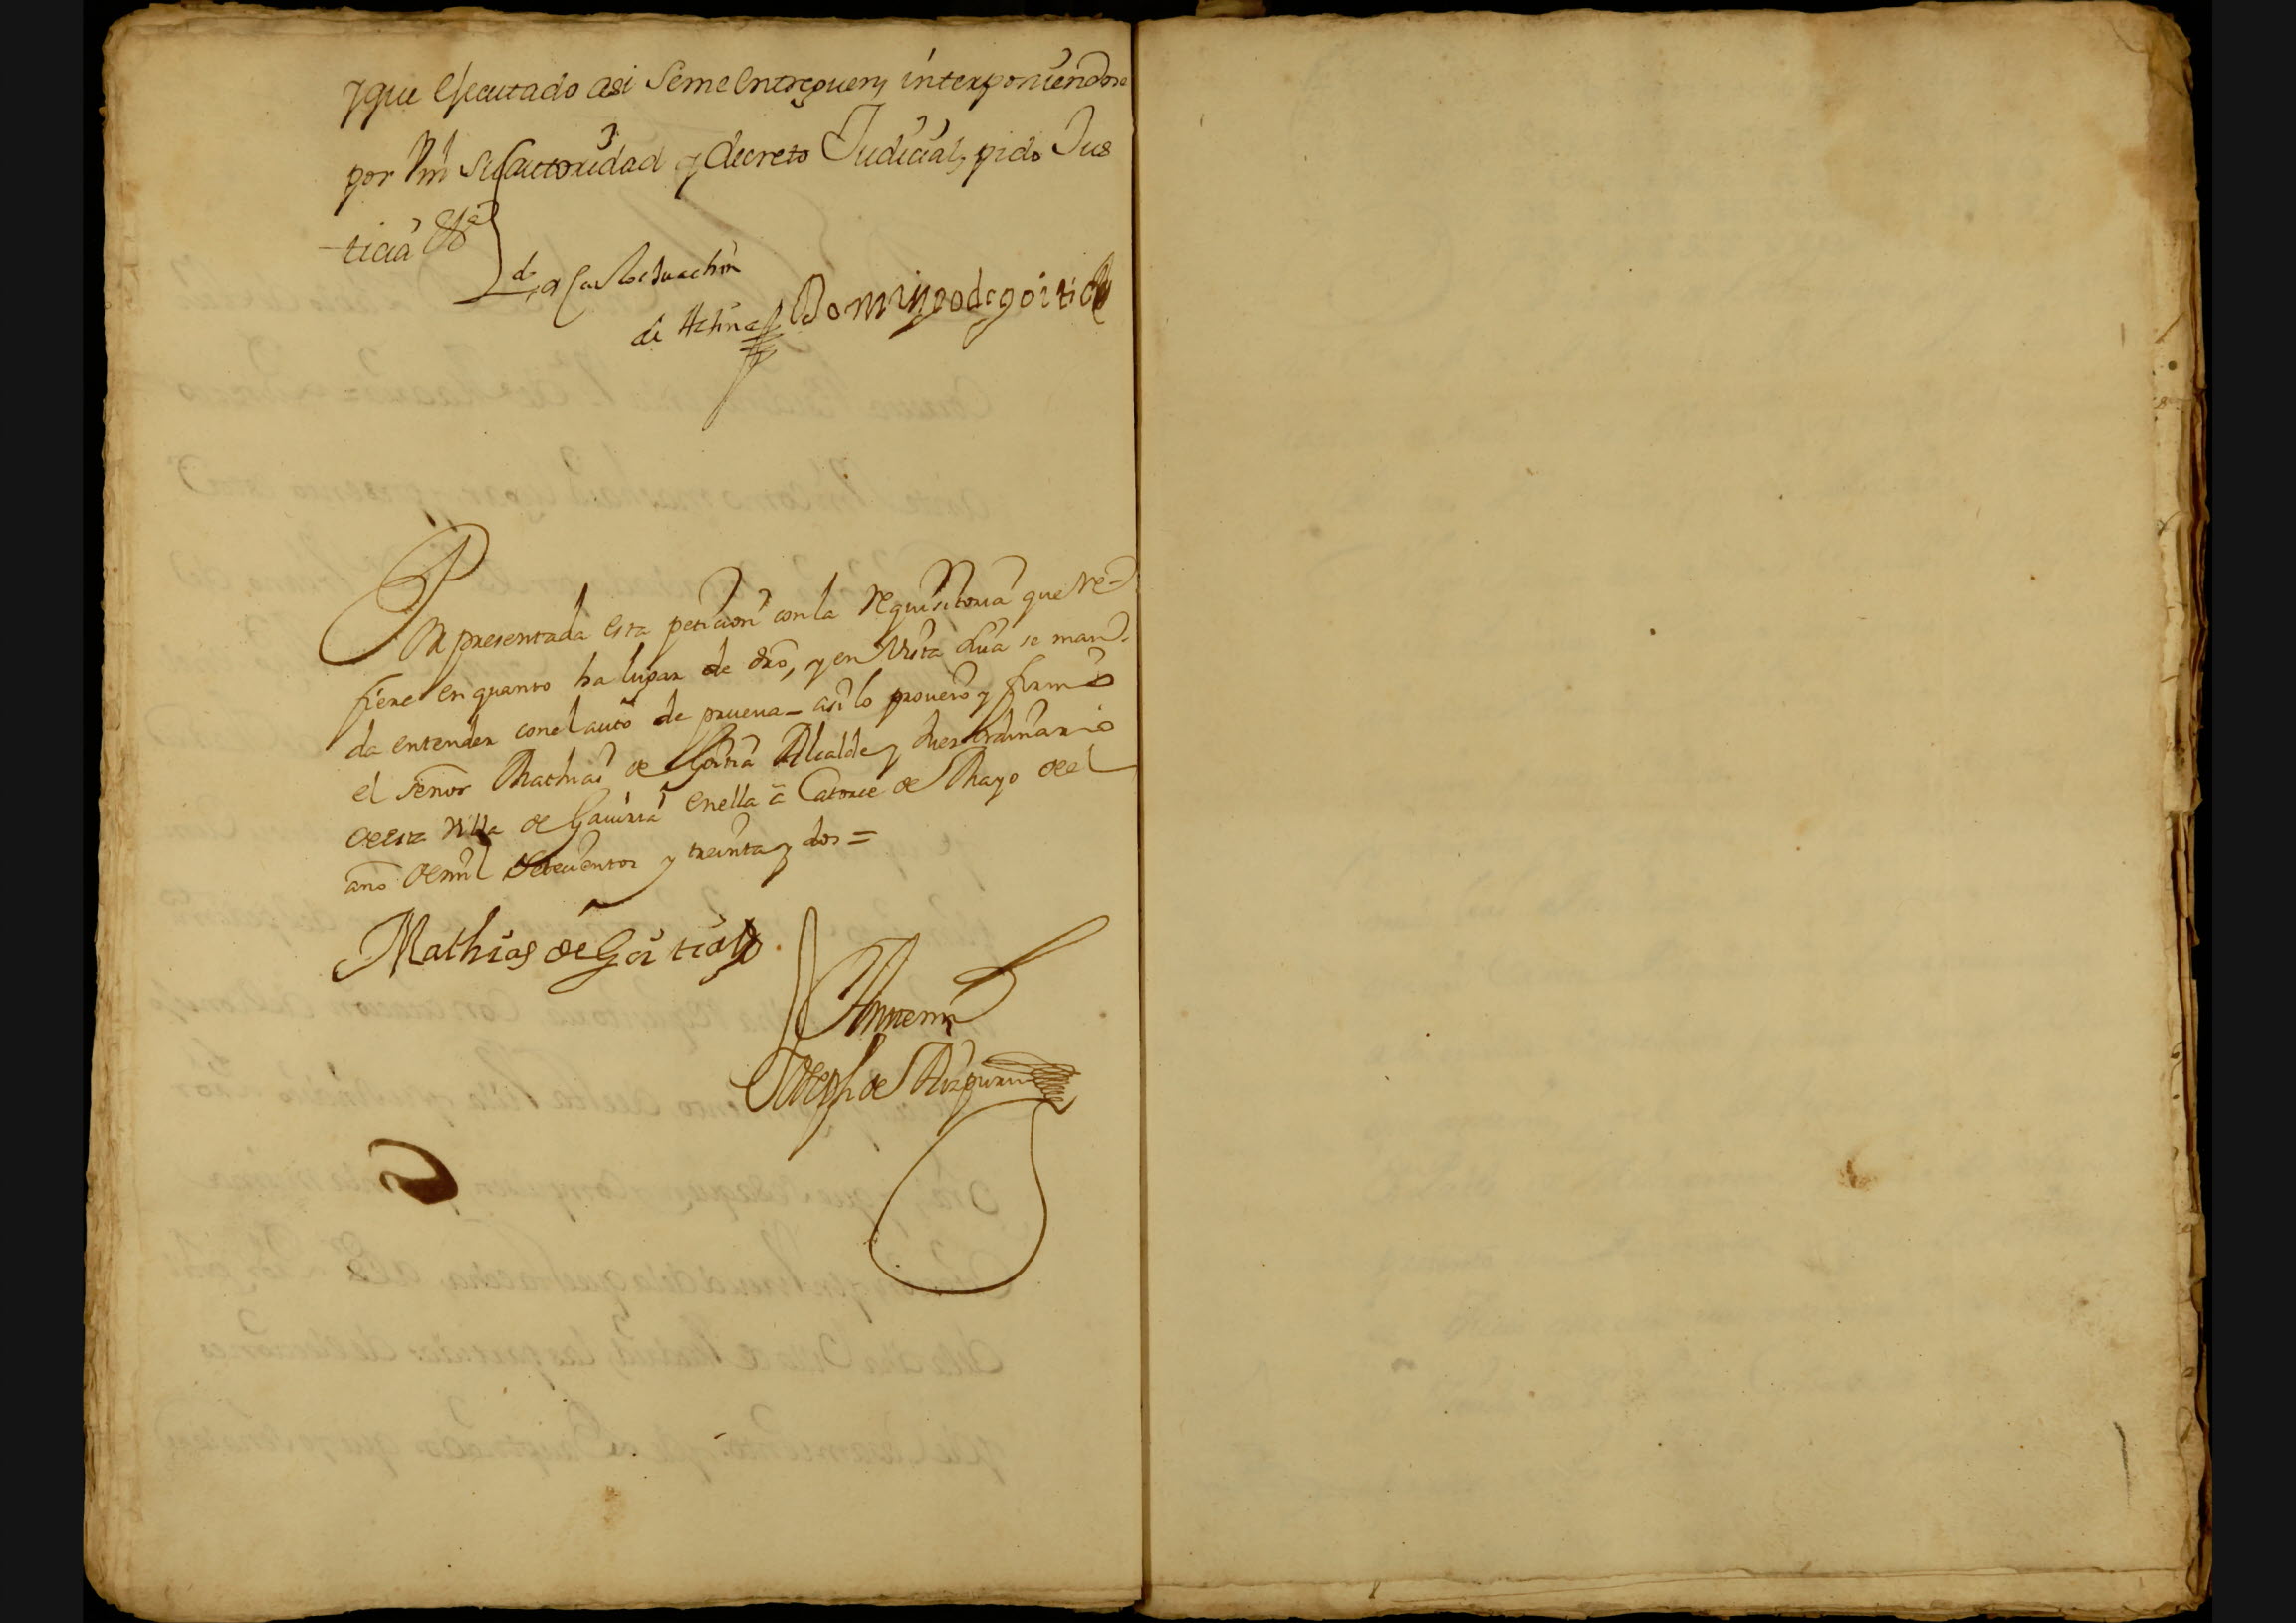 y que Ejecutado asi Seme Entreguen, interponiendose
por Vm su autoridad y decreto Judicial, pido Jus
ticia &ª
Domingo de goitia
Por presentada Esta peticion con la requisitoria que re-
fiere en quanto ha lugar de dro, y en Vista della se man-
da entender con el auto de prueua - asi lo proueio y firmo
el señor Mathias de Goitia Alcalde y Juez ordinario
de esta Villa de Gauiria enella â Catorce de Mayo de el
año de mil setecientos y treinta y dos =
Mathias de Goitia
Antemi
Joseph de Aizpuru